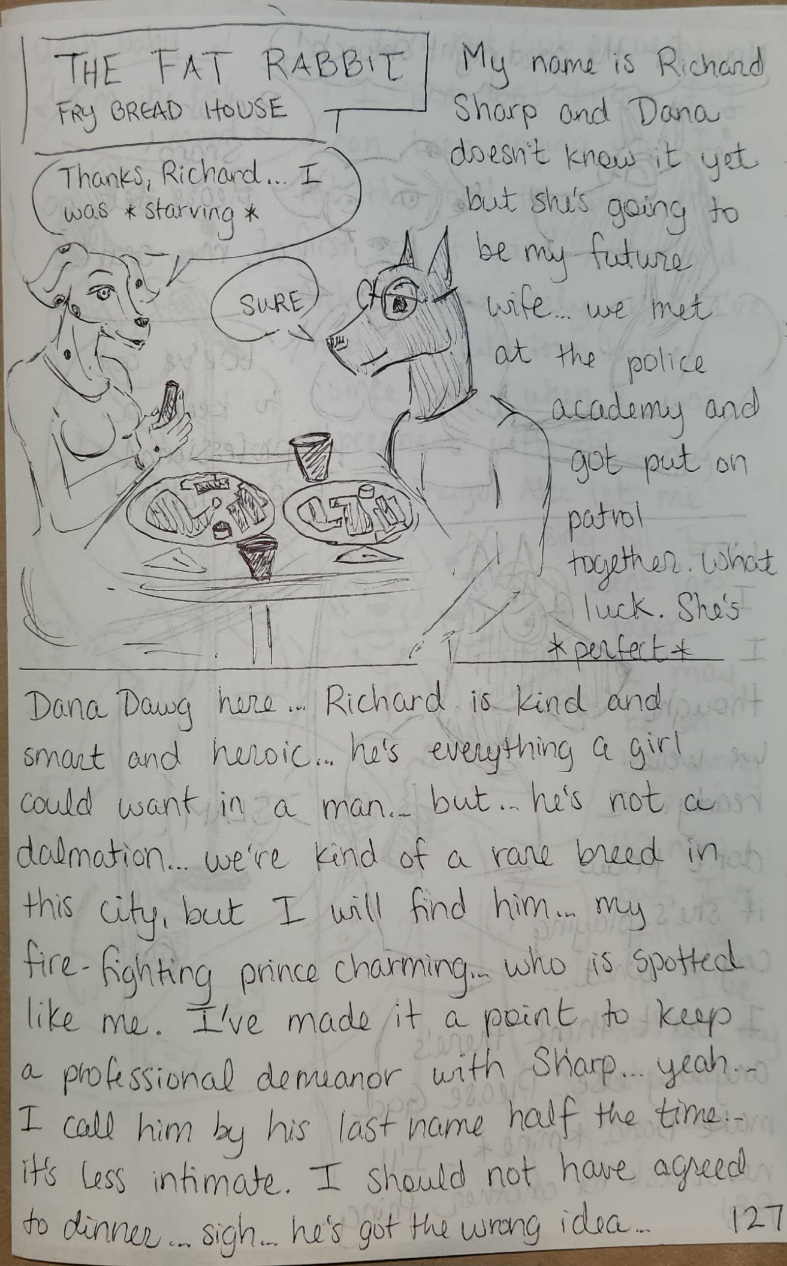 THE FAT RABBIT
FRY BREAD HOUSE
Thanks, Richard... I
was *starving*
SURE
My name is Richard
Sharp and Dana
doesn't know it yet
but she's going to
be my future
wife... we met
at the police
academy and
got put on
patrol
together. What
luck. She's
*perfect*
Dana Dawg here... Richard is kind and
smart and heroic... he's everything a girl
could want in a man... but... he's not a
dalmation... we're kind of a rare breed in
this city, but I will find him... my
fire-fighting prince charming... who is spotted
like me. I've made it a point to keep
a professional demeanor with Sharp... yeah...
I call him by his last name half the time...
it's less intimate. I should not have agreed
to dinner... sigh... he's got the wrong idea...
127